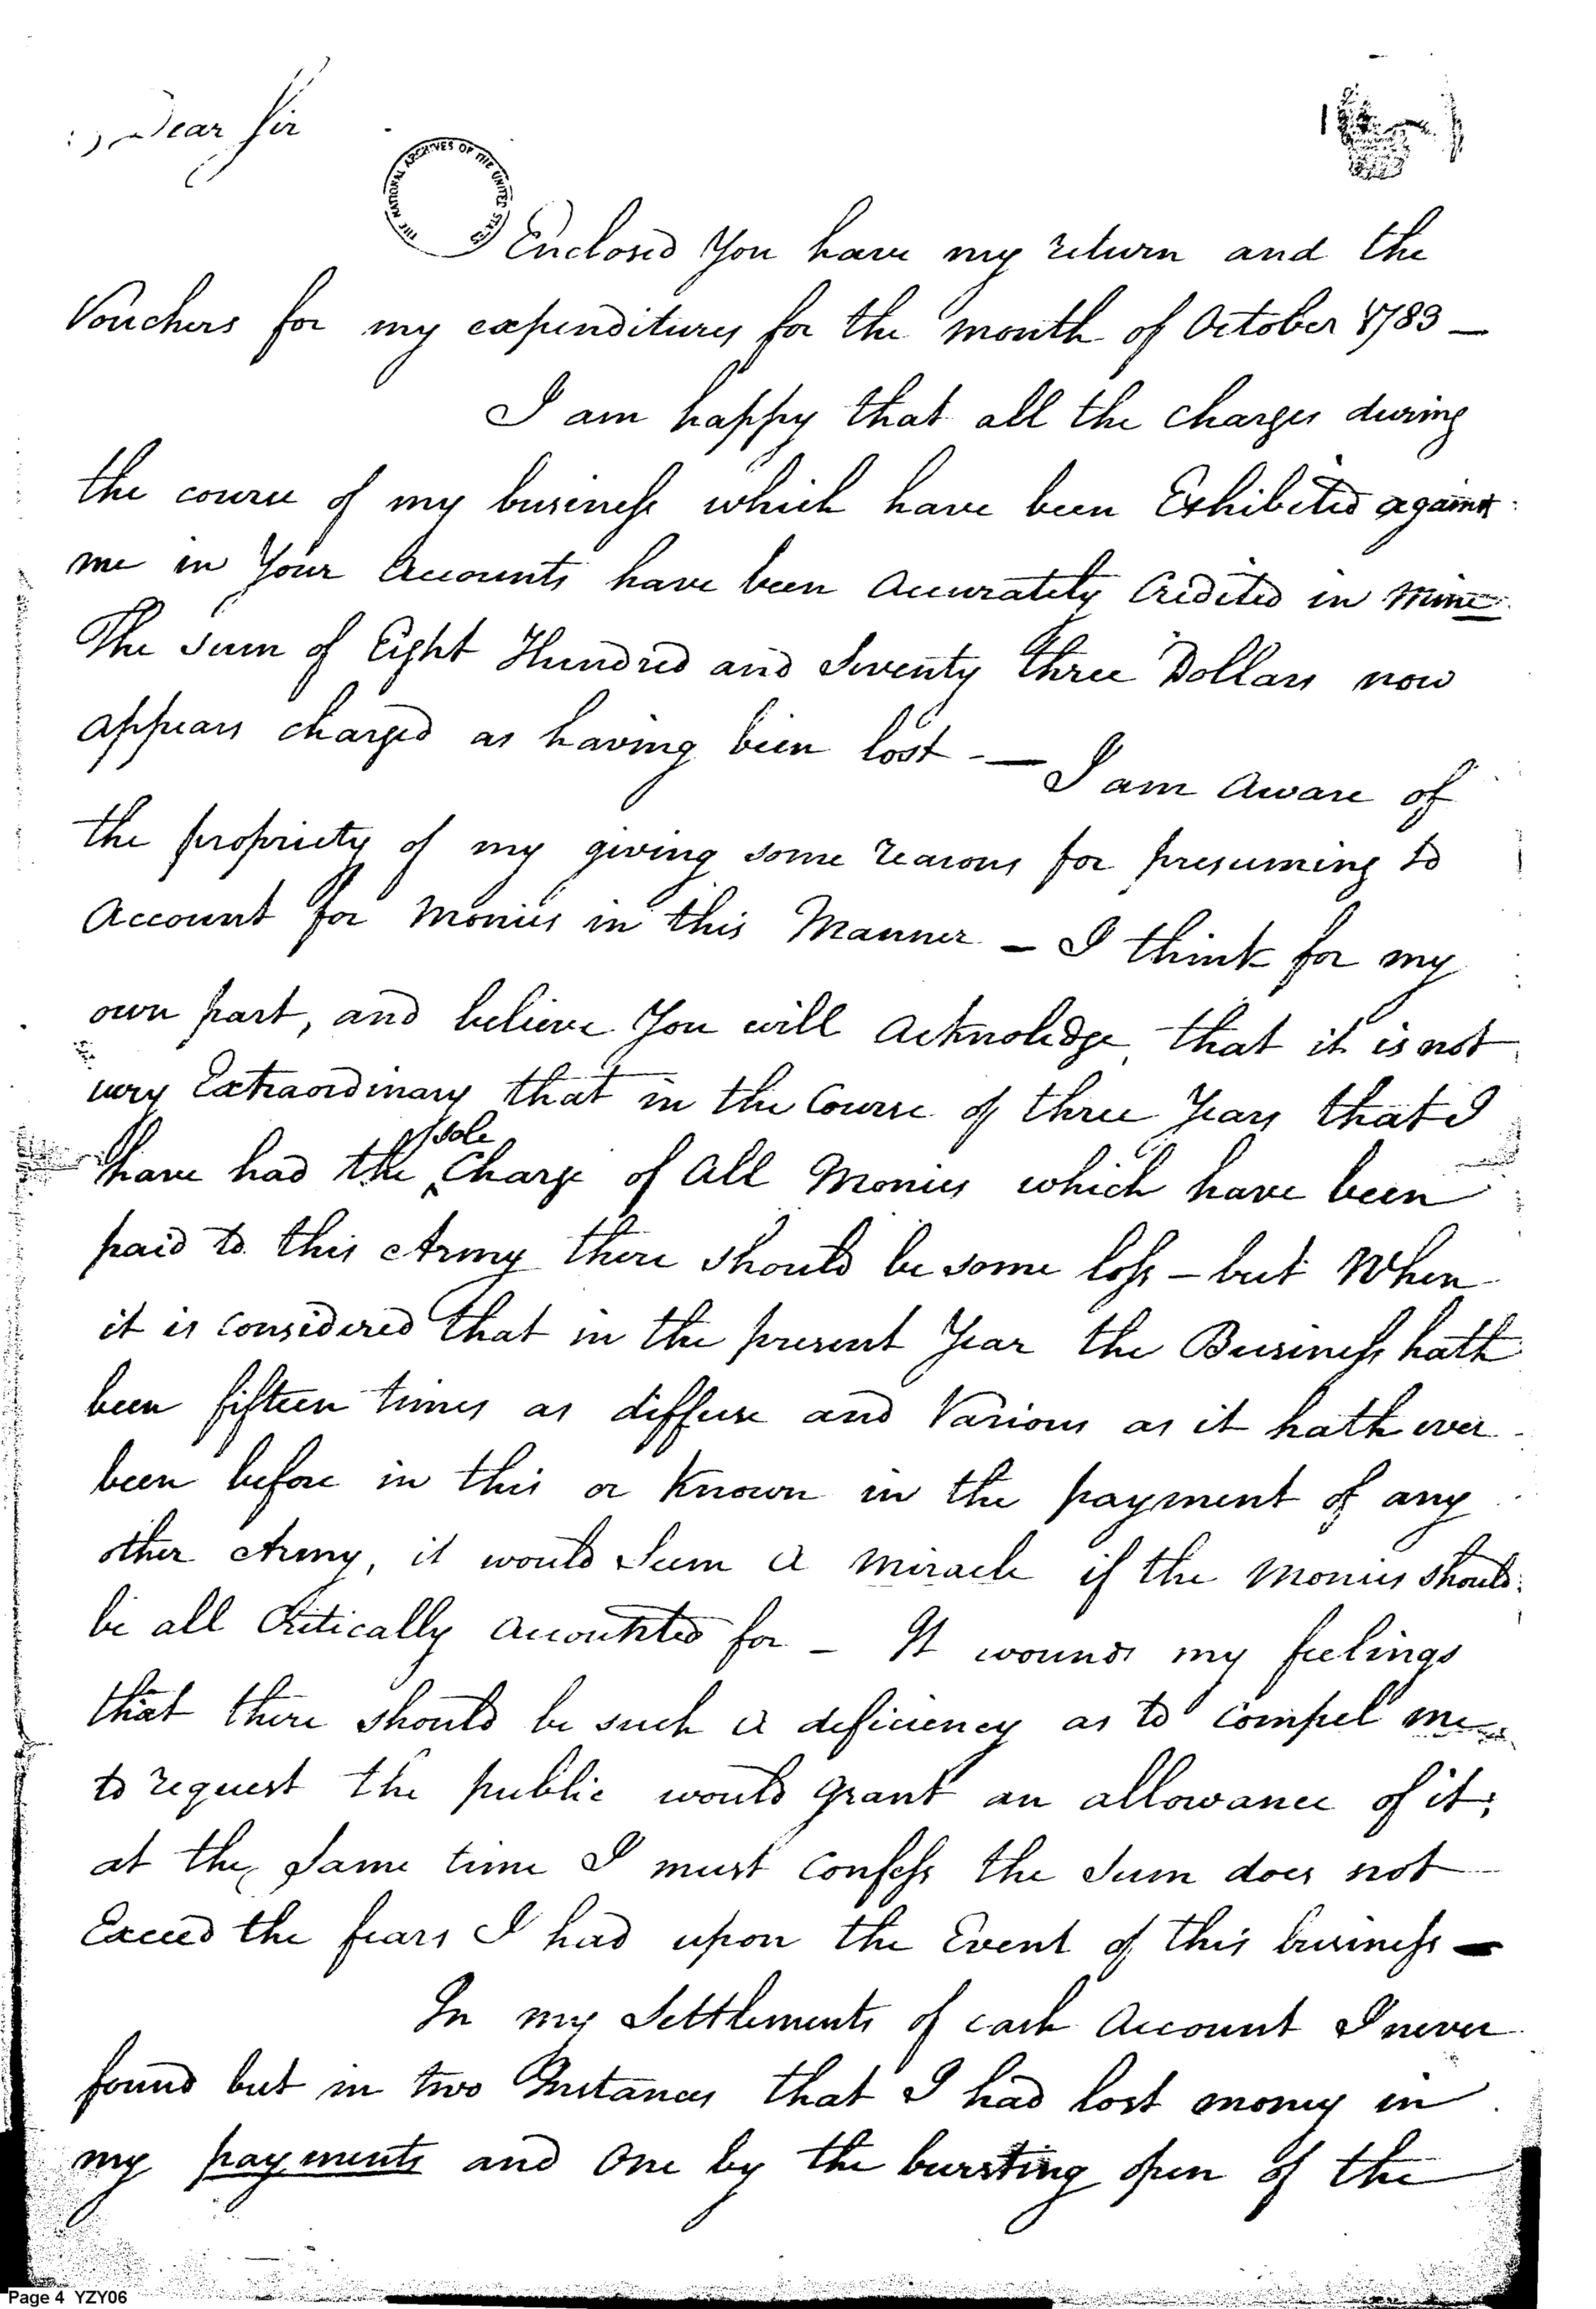 Dear Sir
THE NATIONAL ARCHIVES OF THE UNITED STATES
Enclosed You have my return and the
Vouchers for my expenditures for the month of October 1783 —
I am happy that all the charges during
the course of my business which have been Exhibited against
me in Your Accounts have been Accurately Credited in mine
The sum of Eight Hundred and Seventy three Dollars now
appears charged as having been lost — I am Aware of
the propriety of my giving some reasons for presuming to
Account for Monies in this Manner — I think for my
own part, and believe You will Acknoledge, that it is not
very Extraordinary that in the Course of three Years that I
sole
have had the ‸ Charge of All Monies which have been
paid to this Army there should be some loss — but When
it is Considered that in the present Year the Business hath
been fifteen times as diffuse and Various as it hath ever
been before in this or Known in the payment of any
other Army, it would Seem A Miracle if the Monies should
be all Critically Accounted for — It wounds my feelings
that there should be such A deficiency as to Compel me
to request the public would grant an allowance of it;
at the Same time I must Confess the Sum does not
Exceed the fears I had upon the Event of this business —
In my Settlements of cash Account I never
found but in two Instances that I had lost money in
my payments and One by the bursting open of the
Page 4 YZY06